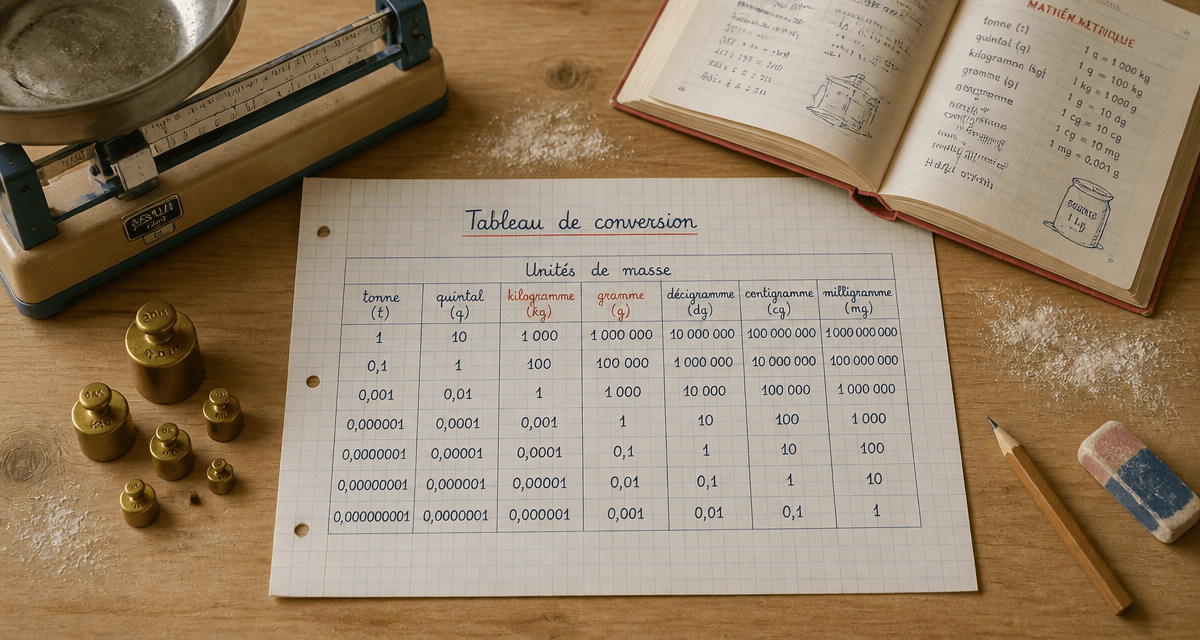 MATHÉM. MÉTRIQUE
tonne (t) 1 q = 1 000 kg
quintal (q) 1 q = 100 kg
kilogramme (kg) 1 kg = 1 000 g
gramme (g) 1 g = 10 dg
1 cg = 10 cg
1 cg = 10 mg
1 mg = 0,001 g
1 kg
Tableau de conversion
Unités de masse
tonne quintal kilogramme gramme décigramme centigramme milligramme
(t) (q) (kg) (g) (dg) (cg) (mg)
1 10 1 000 1 000 000 10 000 000 100 000 000 1 000 000 000
0,1 1 100 100 000 1 000 000 10 000 000 100 000 000
0,001 0,01 1 1 000 10 000 100 000 1 000 000
0,000001 0,0001 0,001 1 10 100 1 000
0,0000001 0,00001 0,0001 0,1 1 10 100
0,00000001 0,000001 0,00001 0,01 0,1 1 10
0,000000001 0,0000001 0,000001 0,001 0,01 0,1 1